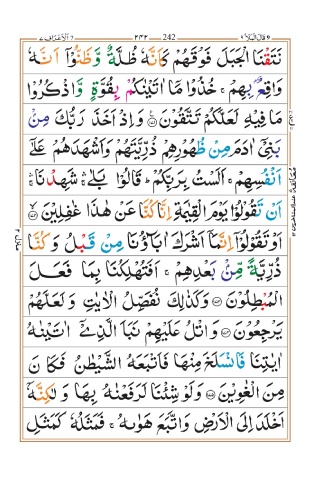 ٧ الاعراف ٧ ٢٤٢ 242 قال الملا ٩
نَتَقْنَا الْجَبَلَ فَوْقَهُمْ كَاَنَّهٗ ظُلَّةٌ وَّظَنُّوْۤا اَنَّهٗ
وَاقِعٌۢ بِهِمْ ۚ خُذُوْا مَاۤ اٰتَيْنٰكُمْ بِقُوَّةٍ وَّاذْكُرُوْا
مَا فِيْهِ لَعَلَّكُمْ تَتَّقُوْنَ ۝ وَاِذْ اَخَذَ رَبُّكَ مِنْۢ
بَنِيْۤ اٰدَمَ مِنْ ظُهُوْرِهِمْ ذُرِّيَّتَهُمْ وَاَشْهَدَهُمْ عَلٰۤى
اَنْفُسِهِمْ ۚ اَلَسْتُ بِرَبِّكُمْ ۭ قَالُوْا بَلٰى ۛ شَهِدْنَا ۛ
اَنْ تَقُوْلُوْا يَوْمَ الْقِيٰمَةِ اِنَّا كُنَّا عَنْ هٰذَا غٰفِلِيْنَ ۝
اَوْ تَقُوْلُوْۤا اِنَّمَاۤ اَشْرَكَ اٰبَآؤُنَا مِنْ قَبْلُ وَكُنَّا
ذُرِّيَّةً مِّنْۢ بَعْدِهِمْ ۚ اَفَتُهْلِكُنَا بِمَا فَعَلَ
الْمُبْطِلُوْنَ ۝ وَكَذٰلِكَ نُفَصِّلُ الْاٰيٰتِ وَلَعَلَّهُمْ
يَرْجِعُوْنَ ۝ وَاتْلُ عَلَيْهِمْ نَبَاَ الَّذِيْۤ اٰتَيْنٰهُ
اٰيٰتِنَا فَانْسَلَخَ مِنْهَا فَاَتْبَعَهُ الشَّيْطٰنُ فَكَانَ
مِنَ الْغٰوِيْنَ ۝ وَلَوْ شِئْنَا لَرَفَعْنٰهُ بِهَا وَلٰكِنَّهٗۤ
اَخْلَدَ اِلَى الْاَرْضِ وَاتَّبَعَ هَوٰىهُ ۚ فَمَثَلُهٗ كَمَثَلِ